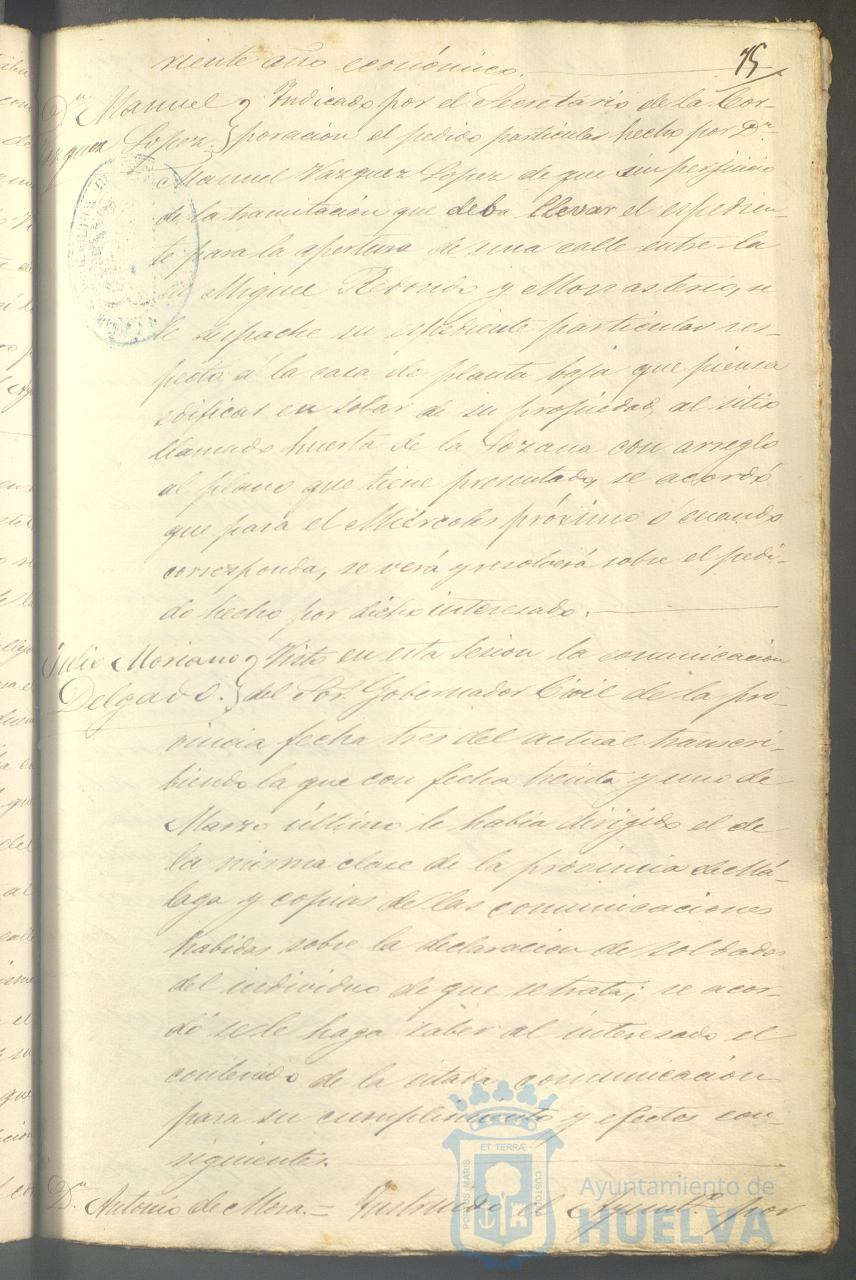 75
riente año económico.
Dn. Manuel Indicado por el Secretario de la Cor-
Vazquez Lopez. poracion el pedido particular hecho por Dn.
Manuel Vazquez Lopez de que sin perjuicio
de la tramitación que deba llevar el espedien-
te para la apertura de una calle entre la
de Miguel Redondo y Monasterio, se
le despache su espediente particular res-
pecto á la casa de planta baja que piensa
edificar en solar de su propiedad, al sitio
llamado huerta de la Lozana con arreglo
al plano que tiene presentado, se acordó
que para el Miércoles próximo ó cuando
corresponda, se verá y resolverá sobre el pedi-
do hecho por dicho interesado.
Julio Moriano Visto en esta sesion la comunicacion
Delgado. del Sor. Gobernador Civil de la pro-
vincia fecha tres del actual transcri-
biendo la que con fecha treinta y uno de
Marzo último le habia dirigido el de
la misma clase de la provincia de Má-
laga y copias de las comunicaciones
habidas sobre la declaracion de soldados
del individuo de que se trata; se acor-
dó se le haga saber al interesado el
contenido de la citada comunicación
para su cumplimiento y efectos con-
siguientes.
Dn. Antonio de Mora. = Instruido el Ayuntº por
PORTUS MARIS ET TERRÆ CUSTODIA
Ayuntamiento de
HUELVA